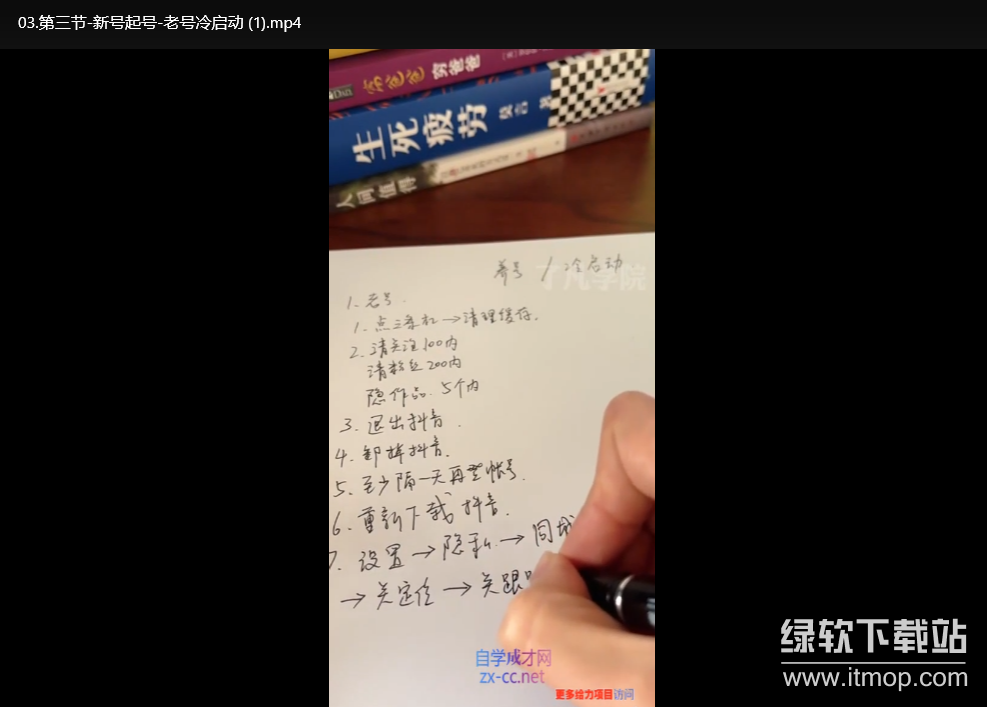 03.第三节-新号起号-老号冷启动 (1).mp4
穷爸爸
生死疲劳 莫言 著
人间值得
养号 / 冷启动
才凡学院
1. 老号.
1. 点三条杠→清理缓存.
2. 清关注100内
清粉丝200内
隐作品. 5个内
3. 退出抖音.
4. 卸掉抖音.
5. 至少隔一天再登帐号.
6. 重新下载抖音.
7. 设置→隐私→同城
→关定位→关跟
自学成才网
zx-cc.net
更多给力项目访问
绿软下载站
www.itmop.com